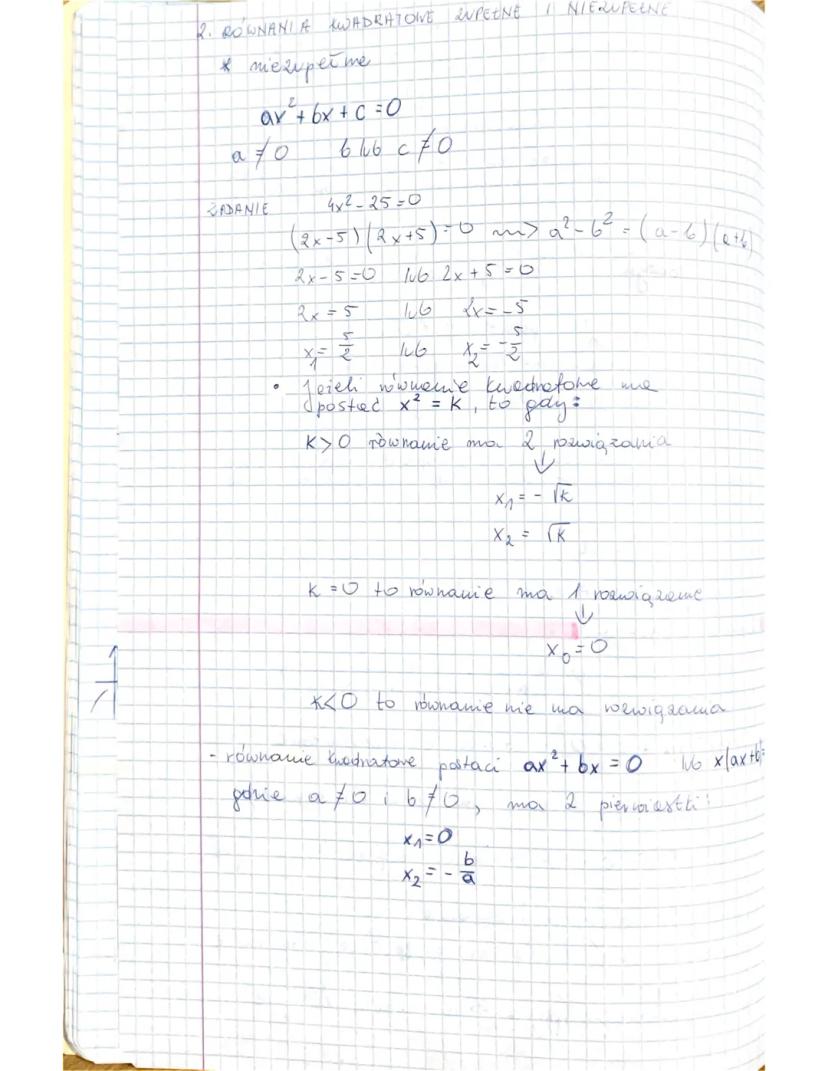 2. RÓWNANIA KWADRATOWE ZUPEŁNE I NIEZUPEŁNE
* niezupełne
ax² + bx + c = 0
a ≠ 0 b lub c ≠ 0
ZADANIE 4x² - 25 = 0
(2x-5)(2x+5) = 0 ~~> a² - b² = (a-b)(a+b)
2x - 5 = 0 lub 2x + 5 = 0
2x = 5 lub 2x = -5
x₁ = 5/2 lub x₂ = -5/2
• Jeżeli równanie kwadratowe ma
postać x² = k, to gdy:
k > 0 równanie ma 2 rozwiązania
↓
x₁ = - √k
x₂ = √k
k = 0 to równanie ma 1 rozwiązanie
↓
x₀ = 0
k < 0 to równanie nie ma rozwiązania
- równanie kwadratowe postaci ax² + bx = 0 lub x(ax+b)=
gdzie a ≠ 0 i b ≠ 0, ma 2 pierwiastki:
x₁ = 0
x₂ = - b/a